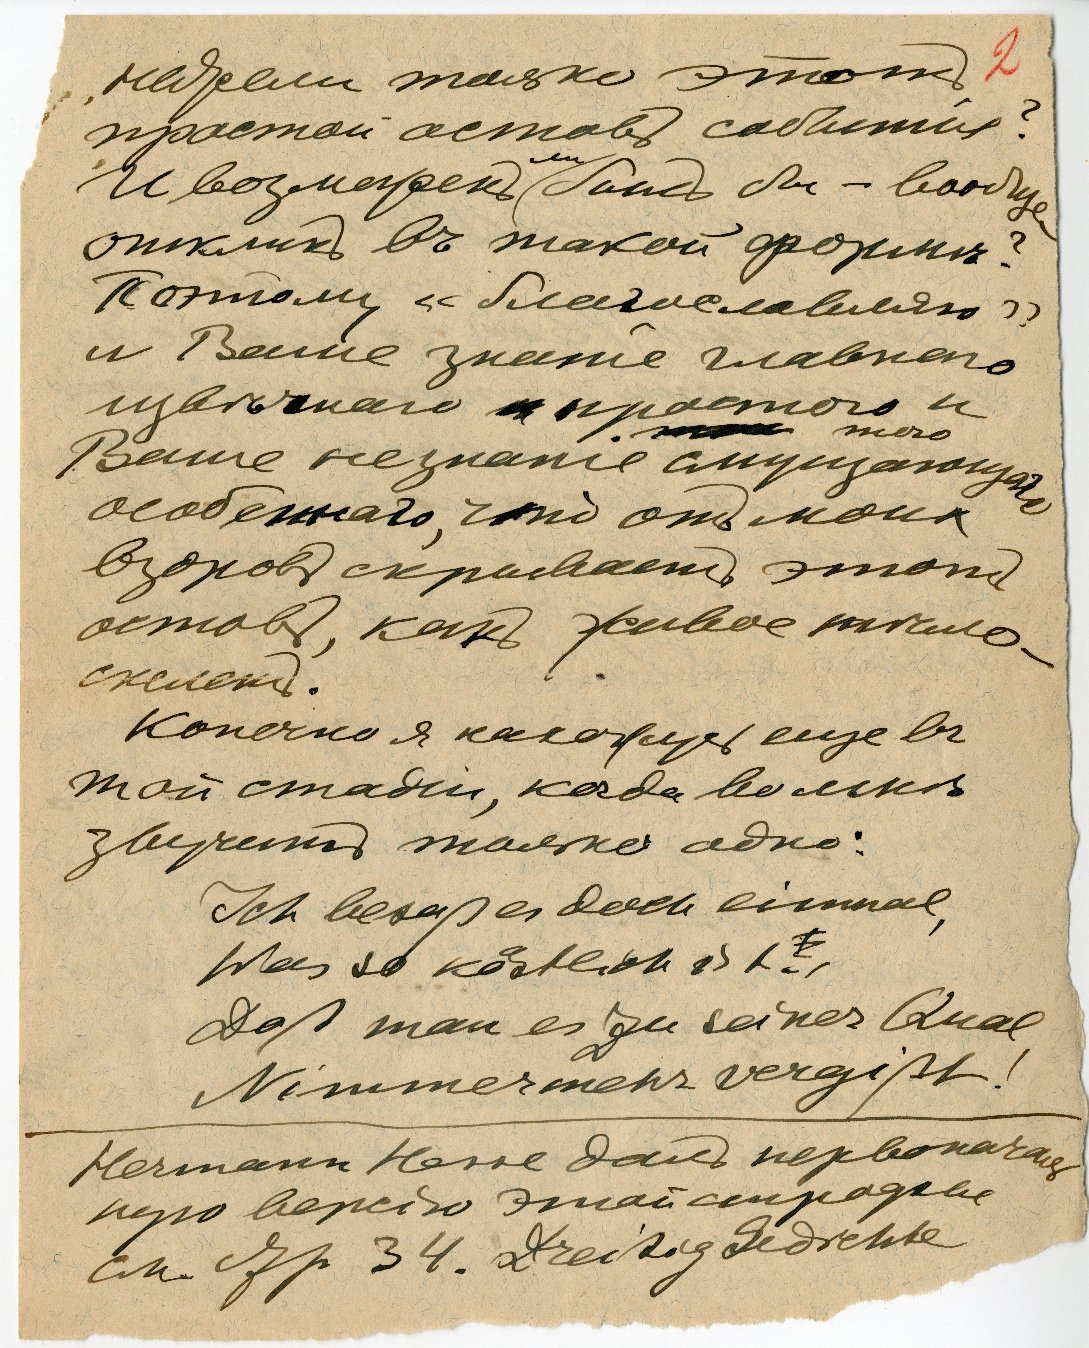 2
недрели только этотъ
простой остовъ событія?
И возможенъ ли былъ бы – вообще
откликъ въ такой формѣ?
Поэтому « благославляю »
и Ваше знаніе главнаго
извѣчнаго простого и
Ваше незнаніе того смущающаго
особеннаго, что отъ моихъ
взоровъ скрываетъ этотъ
остовъ, какъ живое тѣло –
скелетъ.
Конечно я нахожусь еще въ
той стадіи, когда во мнѣ
звучитъ только одно:
Ich besaß es doch einmal,
Was so köstlich ist,
Daß man es zu seiner Qual
Nimmermehr vergißt!
Hermann Hesse далъ первоначаль
ную версію этой строфы
см. стр 34. Dreißig Gedichte